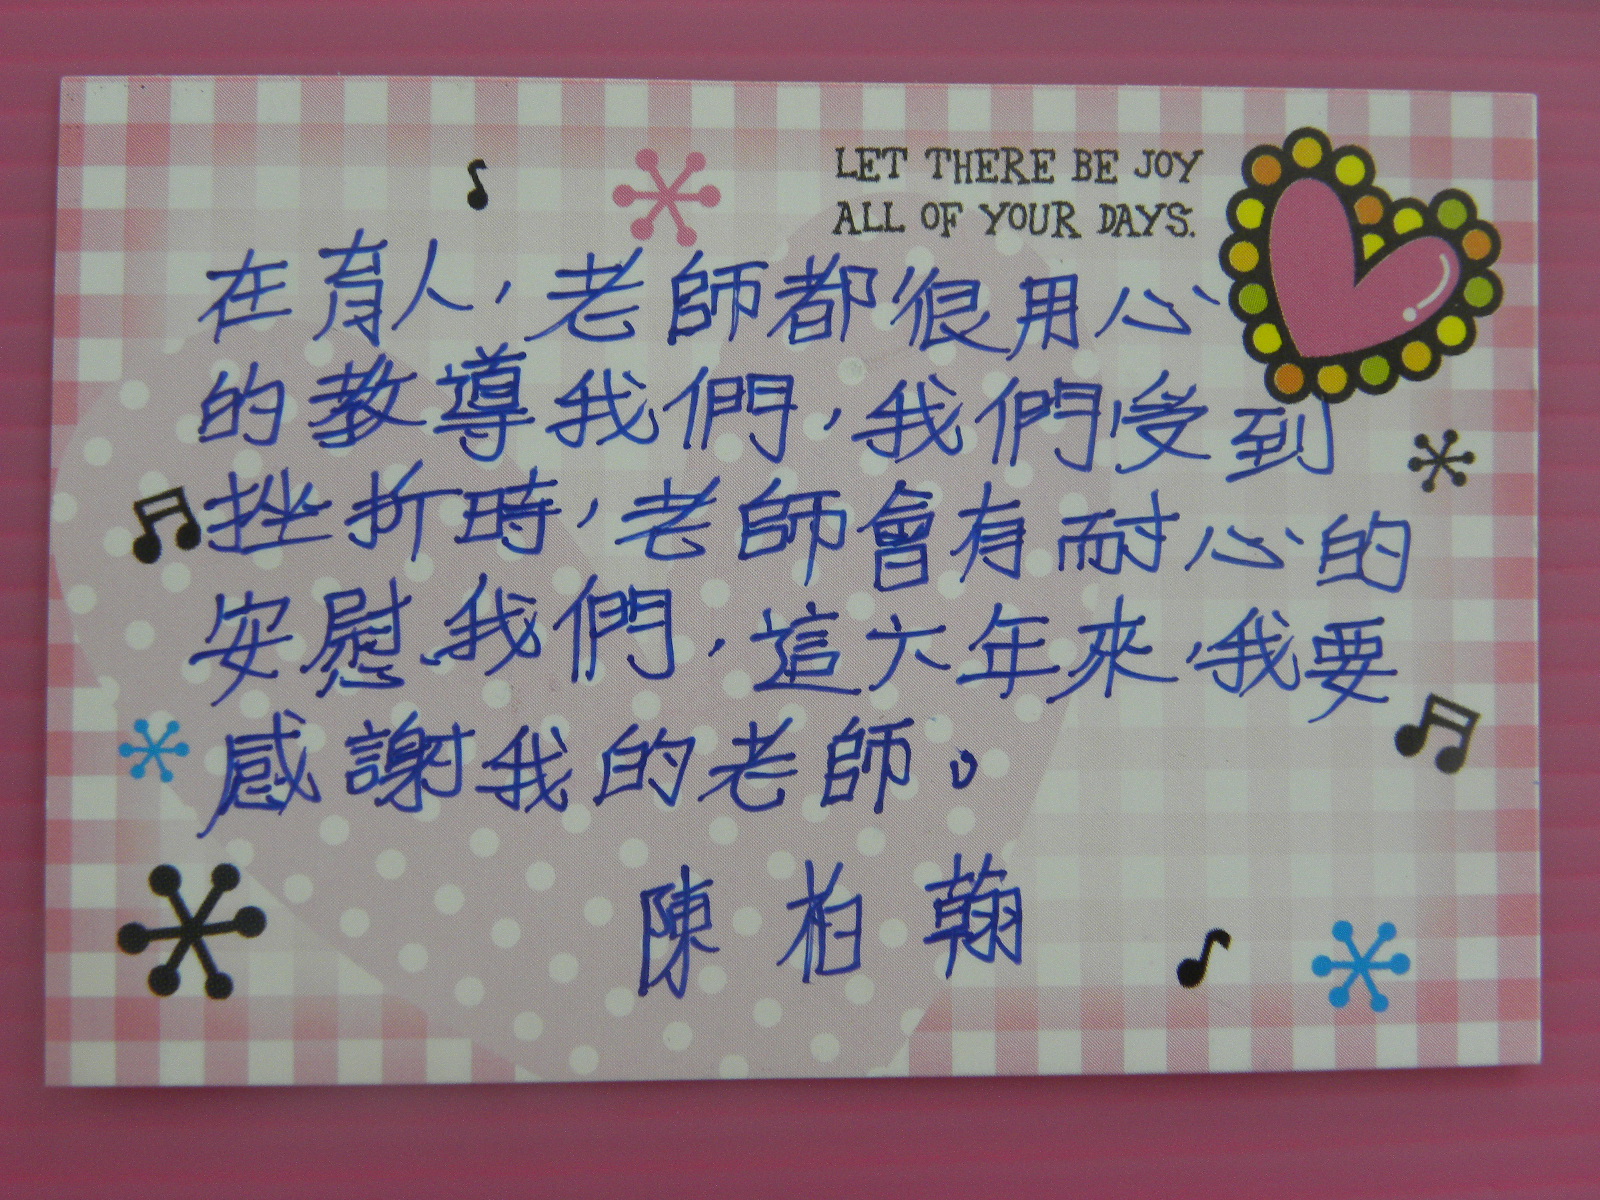 LET THERE BE JOY
ALL OF YOUR DAYS.
在育人，老師都很用心
的教導我們，我們受到
挫折時，老師會有耐心的
安慰我們，這六年來，我要
感謝我的老師。
陳柏翰